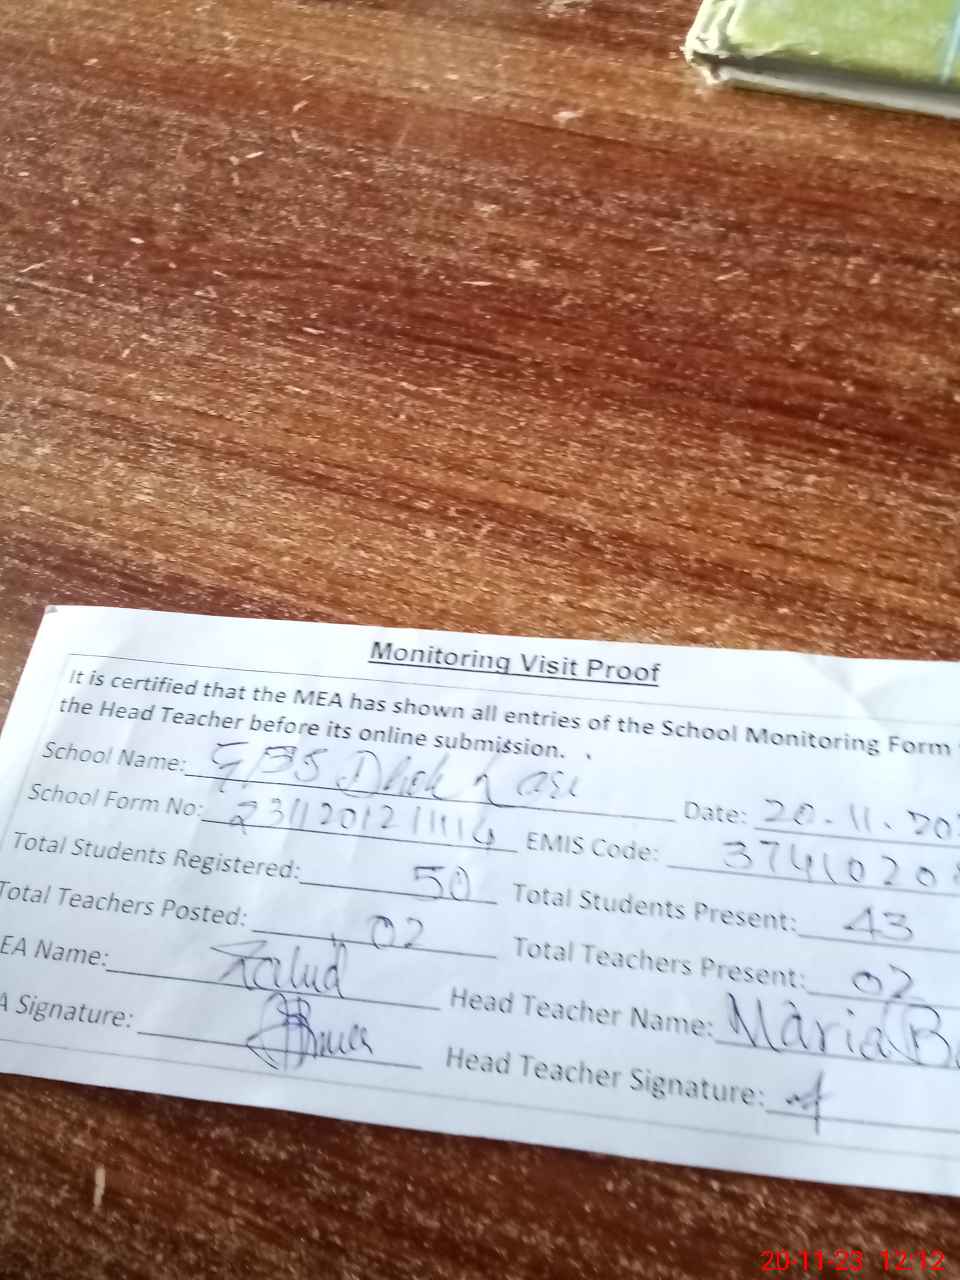 Monitoring Visit Proof
It is certified that the MEA has shown all entries of the School Monitoring Form
the Head Teacher before its online submission.
School Name: GPS Dhok Date: 20.11.202
School Form No: EMIS Code: 3741020
Total Students Registered: 50 Total Students Present: 43
Total Teachers Posted: 02 Total Teachers Present: 02
EA Name: Head Teacher Name: Maria B
A Signature: Head Teacher Signature:
20-11-23 12:12